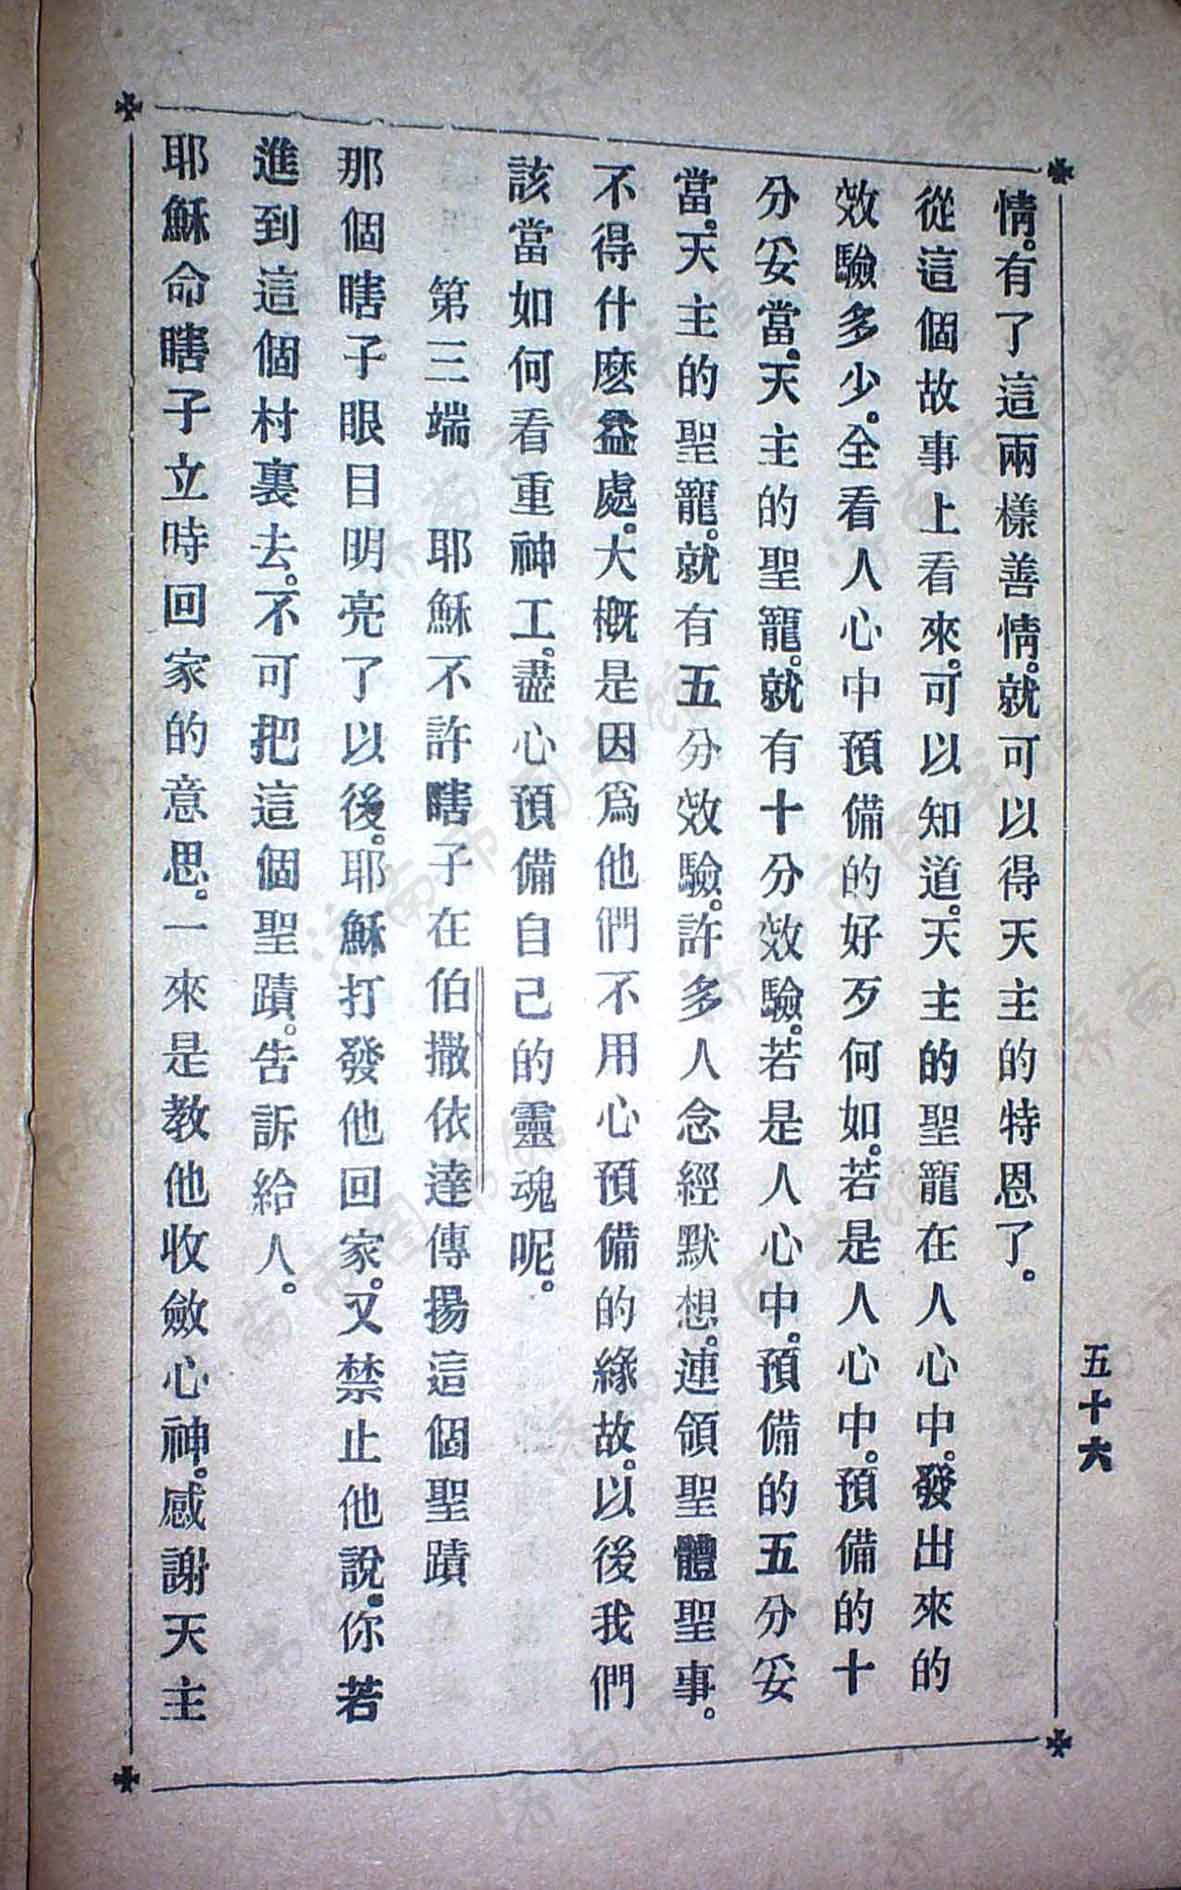 情。有了這兩樣善情。就可以得天主的特恩了。
從這個故事上看來。可以知道。天主的聖寵在人心中。發出來的
效驗多少。全看人心中預備的好歹何如。若是人心中。預備的十
分妥當。天主的聖寵。就有十分效驗。若是人心中。預備的五分妥
當。天主的聖寵。就有五分效驗。許多人念經默想。連領聖體聖事。
不得什麽益處。大概是因爲他們不用心預備的緣故。以後我們
該當如何看重神工。盡心預備自己的靈魂呢。
第三端 耶穌不許瞎子在伯撒依達傳揚這個聖蹟
那個瞎子眼目明亮了以後。耶穌打發他回家。又禁止他說。你若
進到這個村裏去。不可把這個聖蹟。告訴給人。
耶穌命瞎子立時回家的意思。一來是教他收斂心神。感謝天主
五十六
濟南市图书馆